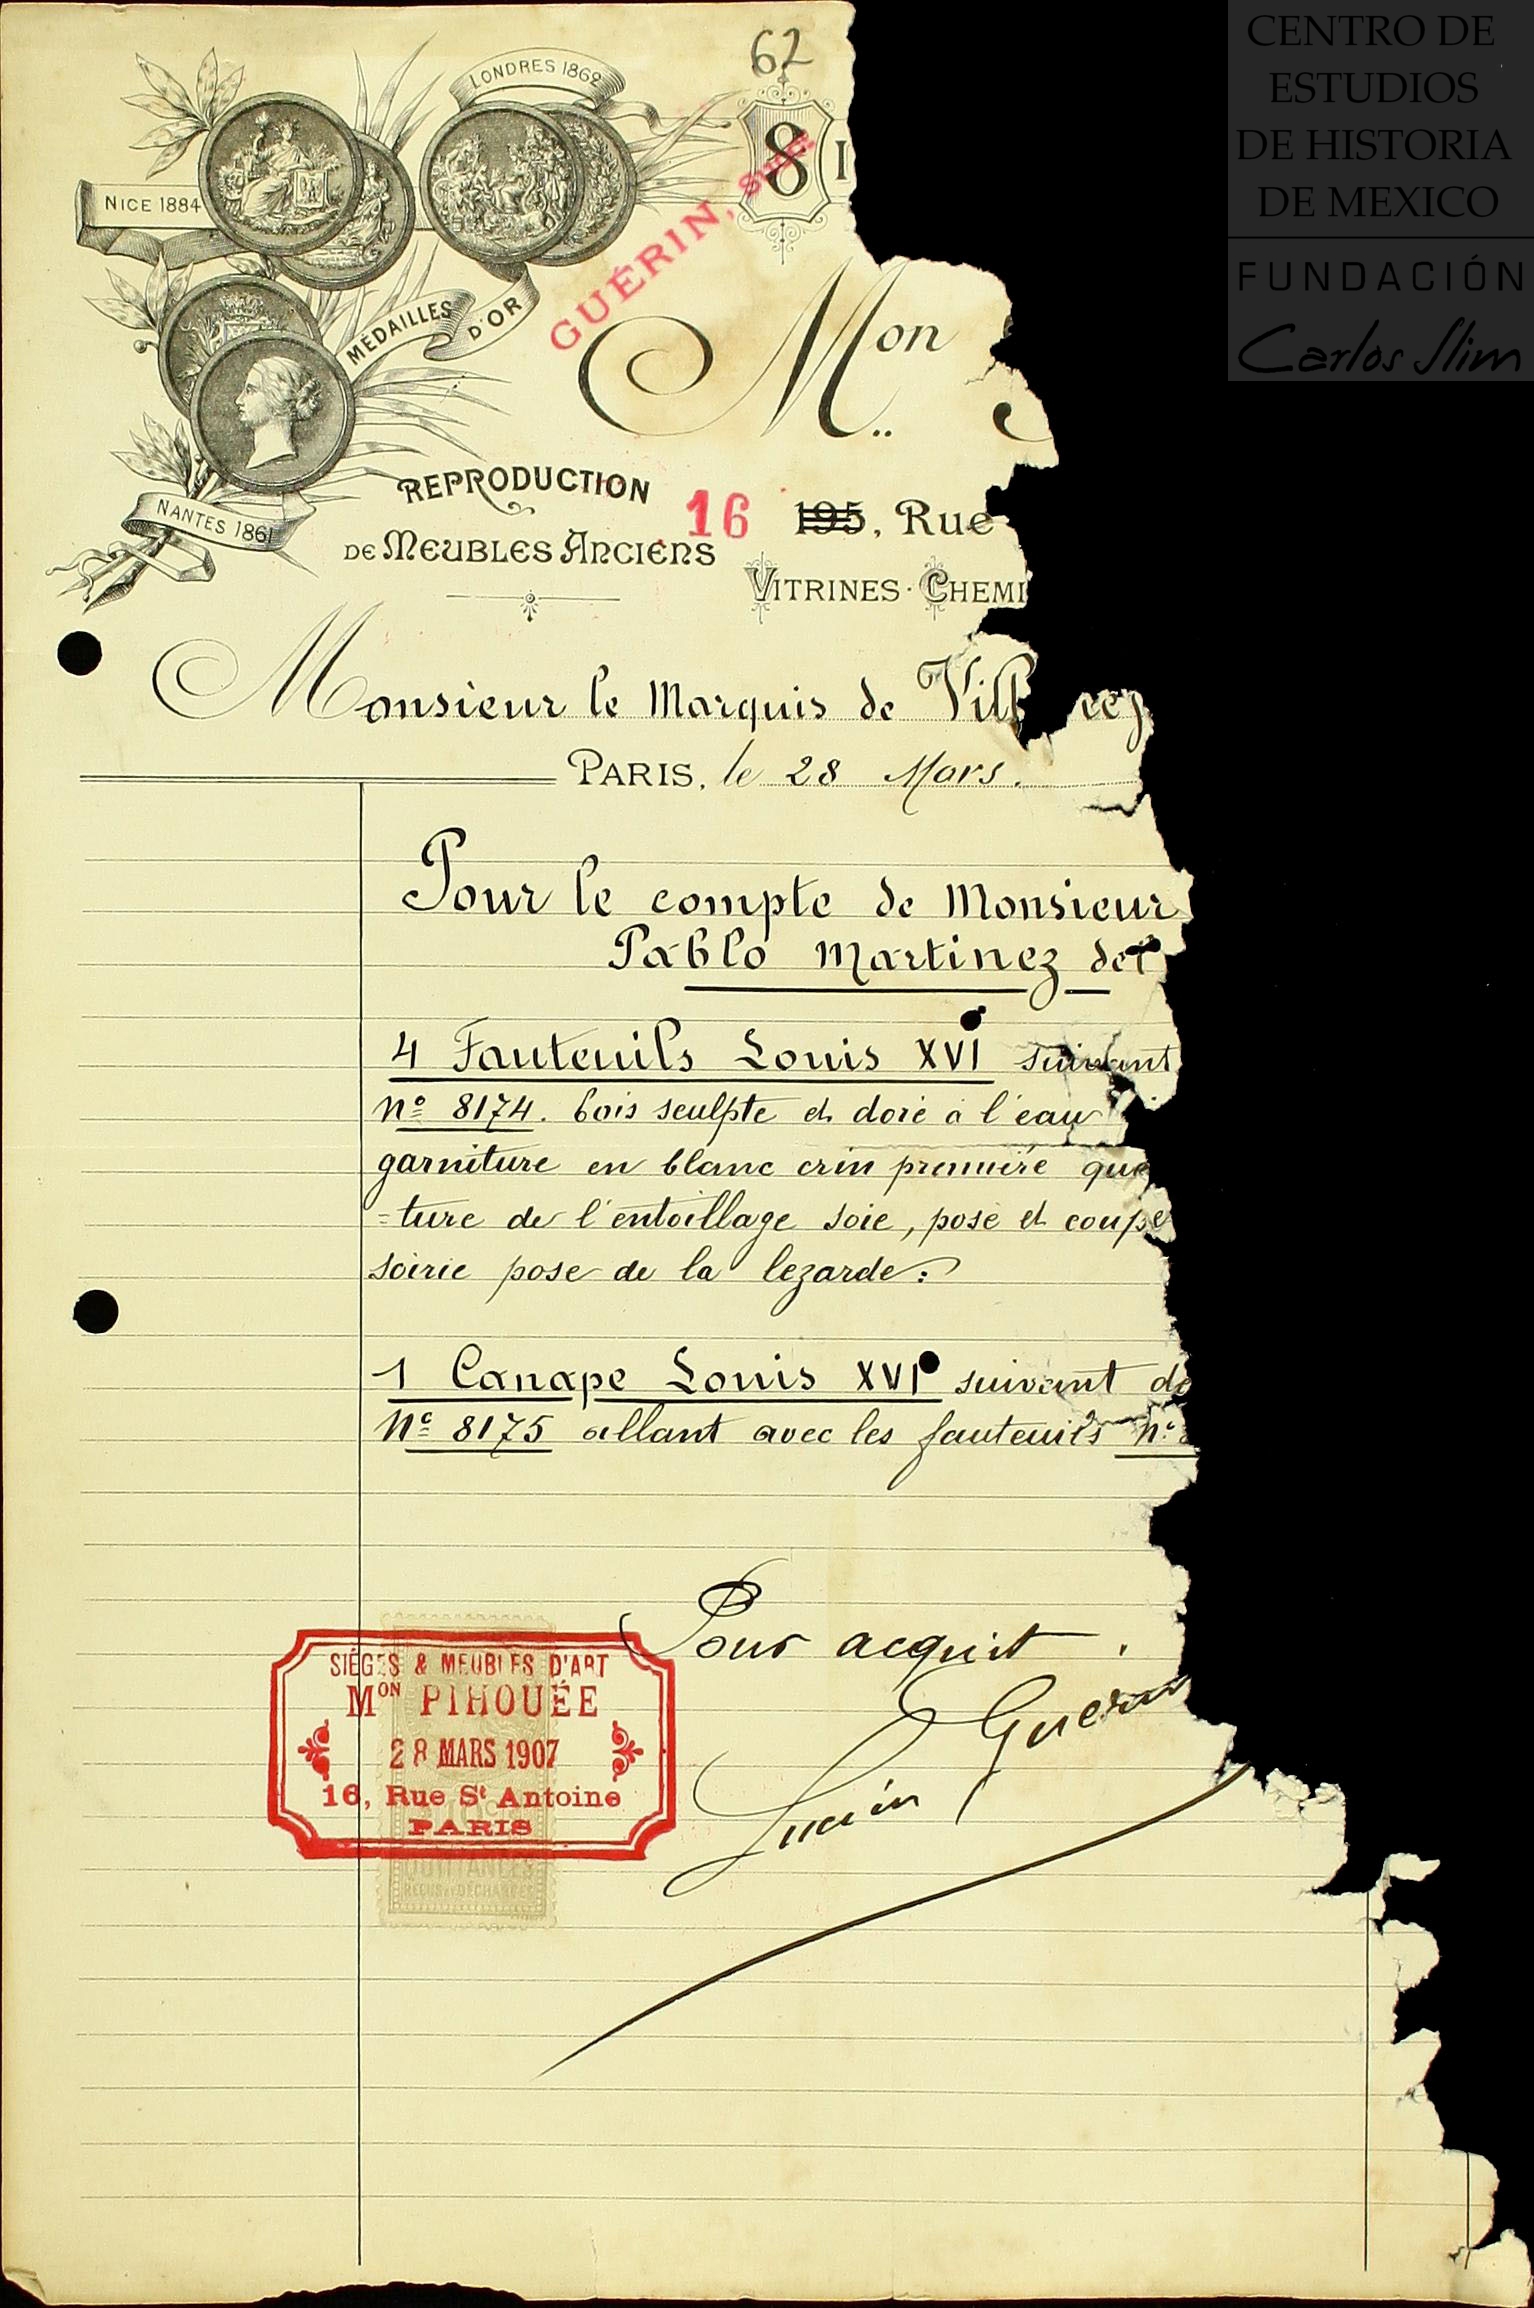 62
CENTRO DE
ESTUDIOS
DE HISTORIA
DE MEXICO
FUNDACIÓN
Carlos Slim
LONDRES 1862
NICE 1884
MÉDAILLES D'OR
NANTES 1861
8
GUÉRIN, Succr
Mon
REPRODUCTION
DE MEUBLES ANCIENS
16 195, Rue
VITRINES · CHEMI
Monsieur le Marquis de Vill
PARIS, le 28 Mars.
Pour le compte de Monsieur
Pablo Martinez del
4 Fauteuils Louis XVI suivant
No 8174. bois sculpte et doré à l'eau
garniture en blanc crin première que
=ture de l'entoillage soie, pose et coupe
soirie pose de la lezarde:
1 Canape Louis XVI suivant de
No 8175 allant avec les fauteuils No
Pour acquit
Lucien Guérin
SIÈGES & MEUBLES D'ART
MON PIHOUÉE
28 MARS 1907
16, Rue St Antoine
PARIS
10c
QUITTANCES
REÇUS ET DÉCHARGES